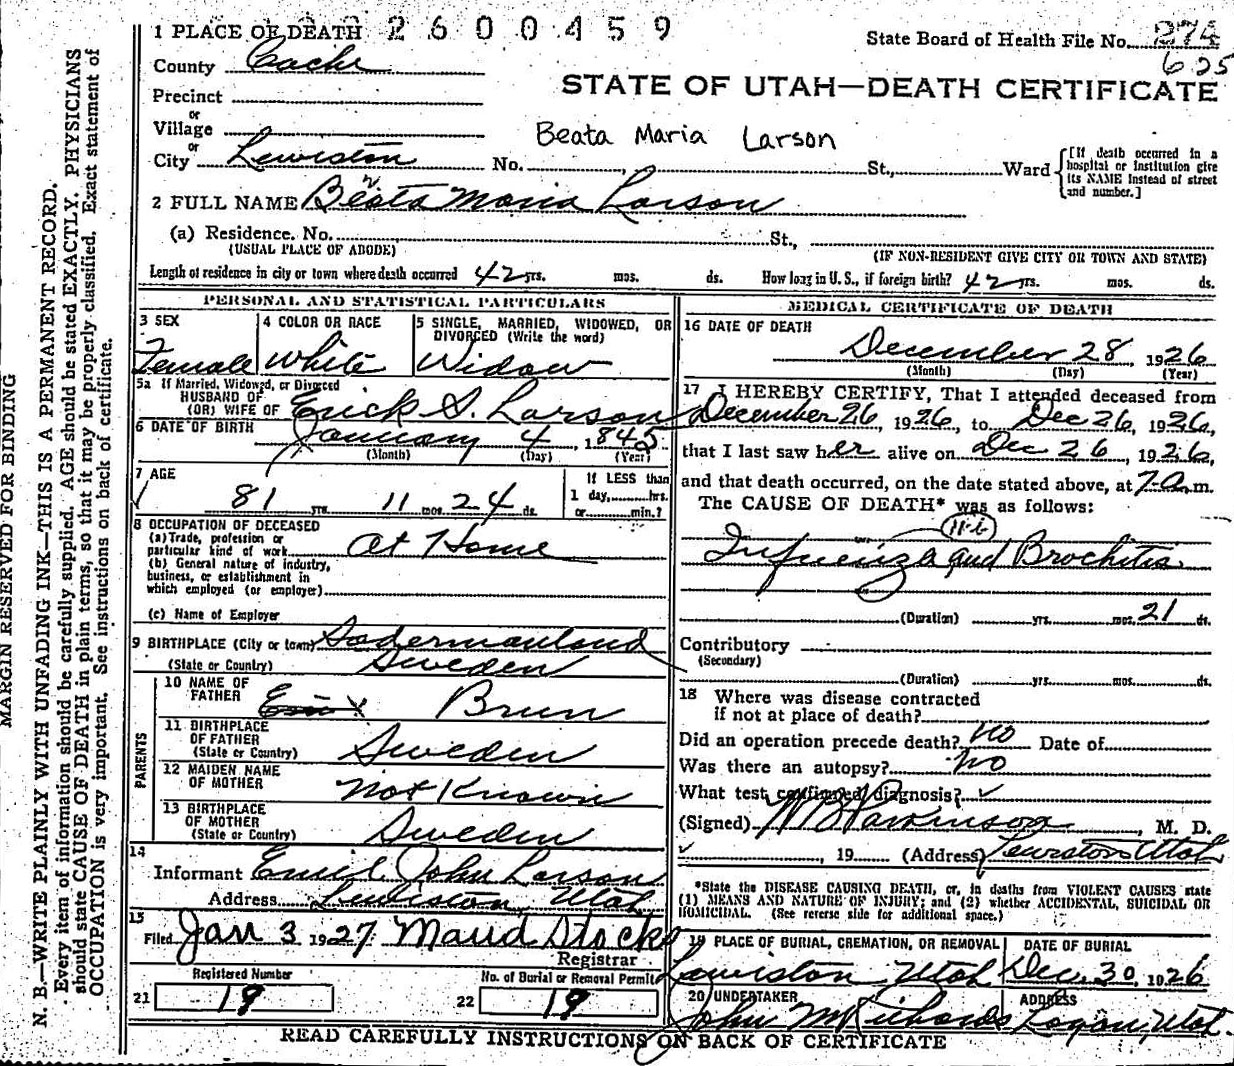 2600459
1 PLACE OF DEATH
State Board of Health File No. 274
625
County Cache
STATE OF UTAH—DEATH CERTIFICATE
Precinct
or
Village
Beata Maria Larson
or
City Lewiston No. St., Ward
[If death occurred in a hospital or institution give its NAME instead of street and number.]
2 FULL NAME Beata Maria Larson
(a) Residence. No. St.,
(USUAL PLACE OF ABODE) (IF NON-RESIDENT GIVE CITY OR TOWN AND STATE)
Length of residence in city or town where death occurred 42 yrs. mos. ds. How long in U. S., if foreign birth? 42 yrs. mos. ds.
PERSONAL AND STATISTICAL PARTICULARS
3 SEX
Female
4 COLOR OR RACE
White
5 SINGLE, MARRIED, WIDOWED, OR DIVORCED (Write the word)
Widow
5a If Married, Widowed, or Divorced
HUSBAND OF
(OR) WIFE OF Erick S. Larson
6 DATE OF BIRTH January 4, 1845
(Month) (Day) (Year)
7 AGE
81 yrs. 11 mos. 24 ds.
If LESS than
1 day, hrs.
or min.?
8 OCCUPATION OF DECEASED
(a) Trade, profession or
particular kind of work At Home
(b) General nature of industry,
business, or establishment in
which employed (or employer)
(c) Name of Employer
9 BIRTHPLACE (City or town) Sodermanland
(State or Country) Sweden
PARENTS
10 NAME OF
FATHER Brun
11 BIRTHPLACE
OF FATHER
(State or Country) Sweden
12 MAIDEN NAME
OF MOTHER Not Known
13 BIRTHPLACE
OF MOTHER
(State or Country) Sweden
14
Informant Emil John Larson
Address Lewiston, Utah
15
Filed Jan 3 1927 Maud Stocks
Registrar
Registered Number
21 19
No. of Burial or Removal Permit
22 19
MEDICAL CERTIFICATE OF DEATH
16 DATE OF DEATH
December 28, 1926
(Month) (Day) (Year)
17 I HEREBY CERTIFY, That I attended deceased from
December 26, 1926, to Dec 26, 1926,
that I last saw her alive on Dec 26, 1926,
and that death occurred, on the date stated above, at 7 a.m.
The CAUSE OF DEATH* was as follows:
11-b
Infuenza and Brochitis
(Duration) yrs. mos. 21 ds.
Contributory
(Secondary)
(Duration) yrs. mos. ds.
18 Where was disease contracted
if not at place of death?
Did an operation precede death? No Date of
Was there an autopsy? No
What test confirmed diagnosis?
(Signed) W B Parkinson, M. D.
, 19 (Address) Lewiston Utah
*State the DISEASE CAUSING DEATH, or, in deaths from VIOLENT CAUSES state
(1) MEANS AND NATURE OF INJURY; and (2) whether ACCIDENTAL, SUICIDAL OR
HOMICIDAL. (See reverse side for additional space.)
19 PLACE OF BURIAL, CREMATION, OR REMOVAL
Lewiston, Utah
DATE OF BURIAL
Dec. 30, 1926
20 UNDERTAKER
John M Richards
ADDRESS
Logan, Utah.
READ CAREFULLY INSTRUCTIONS ON BACK OF CERTIFICATE
MARGIN RESERVED FOR BINDING
N. B.—WRITE PLAINLY WITH UNFADING INK—THIS IS A PERMANENT RECORD.
Every item of information should be carefully supplied. AGE should be stated EXACTLY. PHYSICIANS
should state CAUSE OF DEATH in plain terms, so that it may be properly classified. Exact statement of
OCCUPATION is very important. See instructions on back of certificate.